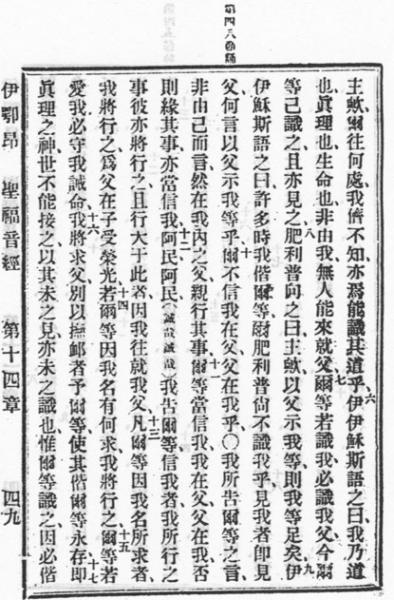 第四八卷誦
主歟爾往何處我儕不知亦焉能識其道乎六伊伊穌斯語之曰我乃道
也眞理也生命也非由我無人能來就父七爾等若識我必識我父今爾
等已識之且亦見之八肥利普向之曰主歟以父示我等則我等足矣九伊
伊穌斯語之曰許多時我偕爾等爾肥利普尙不識我乎見我者卽見
父何言以父示我等乎十爾不信我在父父在我乎〇我所吿爾等之言
非由己而言然在我內之父親行其事十一爾等當信我我在父父在我否
則緣其事亦當信我十二阿民阿民誠哉誠哉我吿爾等信我者我所行之
事彼亦將行之且行大于此者因我往就我父十三凡爾等因我名所求者
我將行之爲父在子受榮光十四若爾等因我名有何求我將行之十五爾等若
愛我必守我誡命十六我將求父別以撫卹者予爾等使其偕爾等永存十七卽
眞理之神世不能接之以其未之見亦未之識也惟爾等識之因必偕
伊鄂昂 聖福音經 第十四章 四九